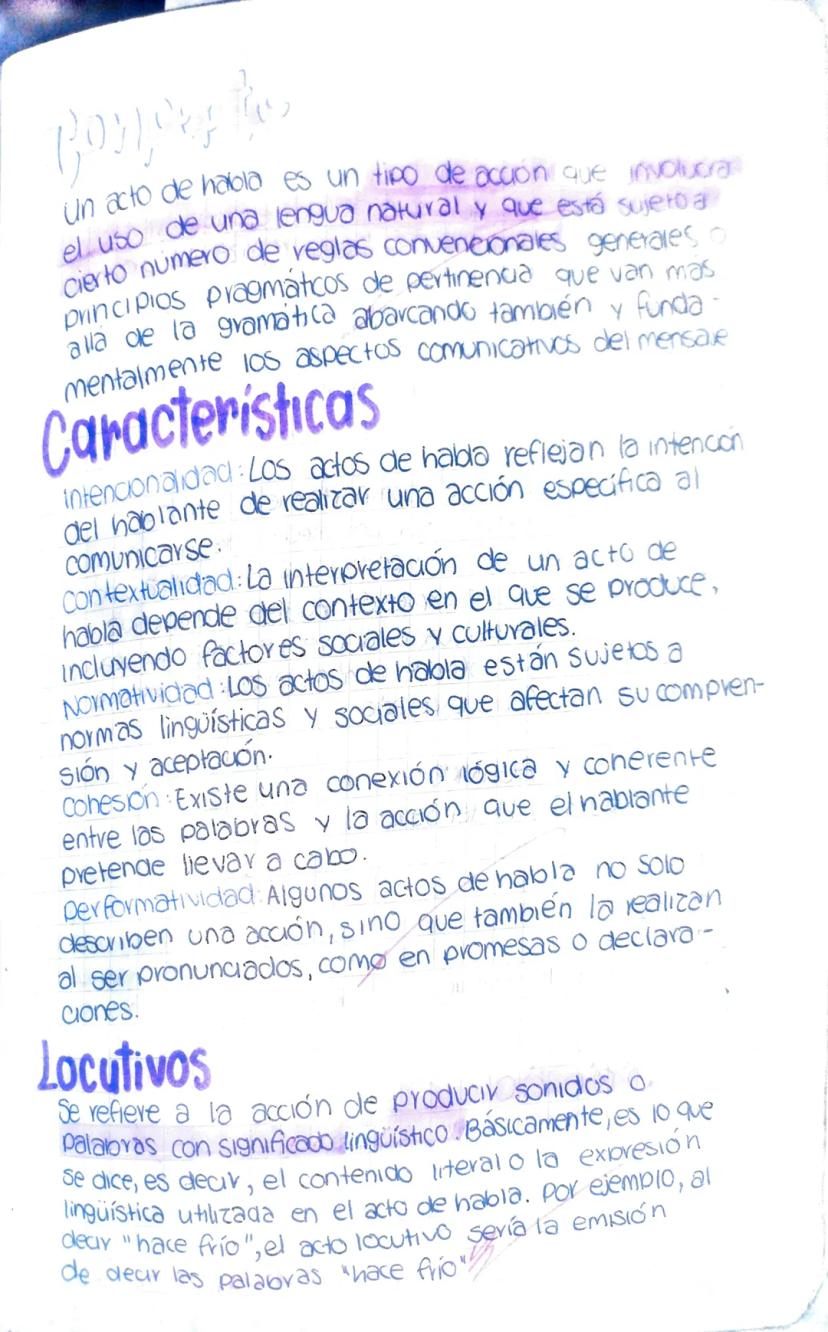 Un acto de habla es un tipo de acción que involucra
el uso de una lengua natural y que está sujeto a
cierto número de reglas convencionales generales o
principios pragmáticos de pertinencia que van más
allá de la gramática abarcando también y funda-
mentalmente los aspectos comunicativos del mensaje
Características
Intencionalidad: Los actos de habla reflejan la intención
del hablante de realizar una acción específica al
comunicarse.
Contextualidad: La interpretación de un acto de
habla depende del contexto en el que se produce,
incluyendo factores sociales y culturales.
Normatividad: Los actos de habla están sujetos a
normas lingüísticas y sociales que afectan su compren-
sión y aceptación.
Cohesión: Existe una conexión lógica y coherente
entre las palabras y la acción que el hablante
pretende llevar a cabo.
Performatividad: Algunos actos de habla no solo
describen una acción, sino que también la realizan
al ser pronunciados, como en promesas o declara-
ciones.
Locutivos
Se refiere a la acción de producir sonidos o
palabras con significado lingüístico. Básicamente, es lo que
se dice, es decir, el contenido literal o la expresión
lingüística utilizada en el acto de habla. Por ejemplo, al
decir "hace frío", el acto locutivo sería la emisión
de decir las palabras "hace frío"